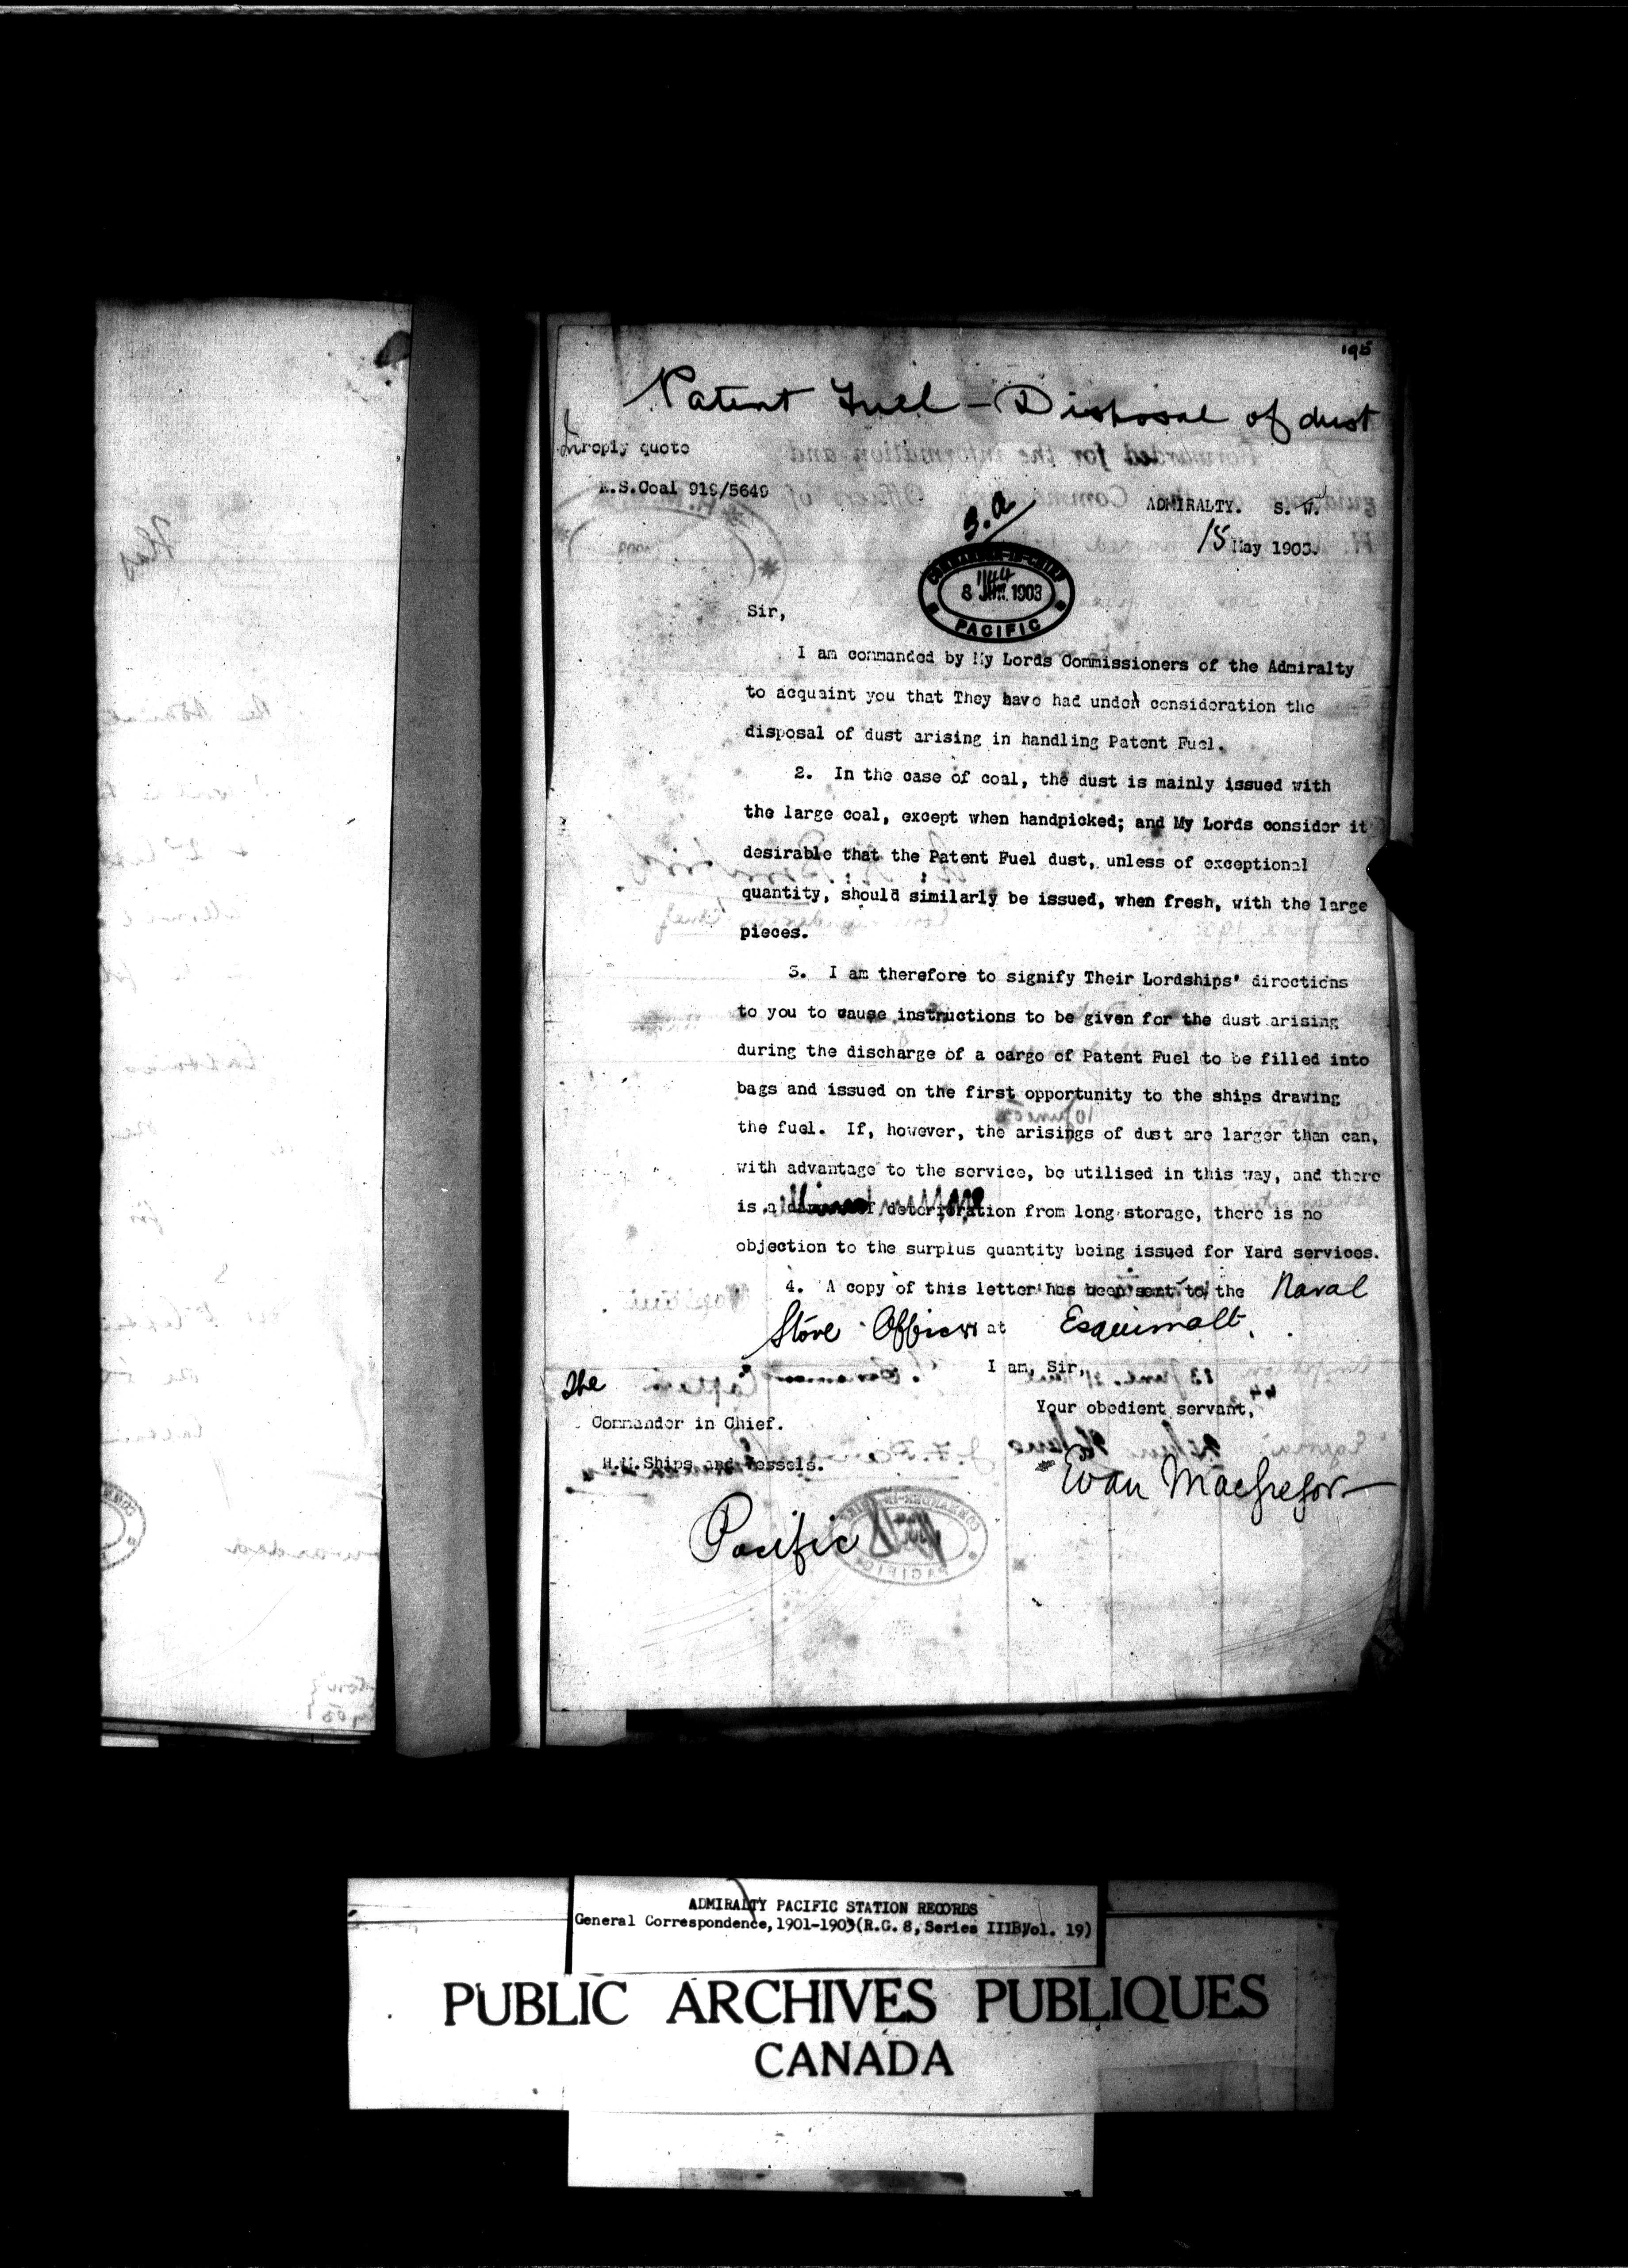 195
Patent Fuel - Disposal of dust
In reply quote
N.S.Coal 919/5649
3.a
ADMIRALTY. S. W.
15 May 1903.
COMMANDER-IN-CHIEF
1144
8 JUN. 1903
PACIFIC
Sir,
I am commanded by My Lords Commissioners of the Admiralty
to acquaint you that They have had under consideration the
disposal of dust arising in handling Patent Fuel.
2. In the case of coal, the dust is mainly issued with
the large coal, except when handpicked; and My Lords consider it
desirable that the Patent Fuel dust, unless of exceptional
quantity, should similarly be issued, when fresh, with the large
pieces.
3. I am therefore to signify Their Lordships' directions
to you to cause instructions to be given for the dust arising
during the discharge of a cargo of Patent Fuel to be filled into
bags and issued on the first opportunity to the ships drawing
the fuel. If, however, the arisings of dust are larger than can,
with advantage to the service, be utilised in this way, and there
is a danger of deterioration from long storage, there is no
objection to the surplus quantity being issued for Yard services.
4. A copy of this letter has been sent to the Naval
Store Officer at Esquimalt.
I am, Sir,
Your obedient servant,
Evan MacGregor
The
Commander in Chief.
H.M.Ships and Vessels.
Pacific
ADMIRALTY PACIFIC STATION RECORDS
General Correspondence, 1901-1903 (R.G. 8, Series IIIB, Vol. 19)
PUBLIC ARCHIVES PUBLIQUES
CANADA